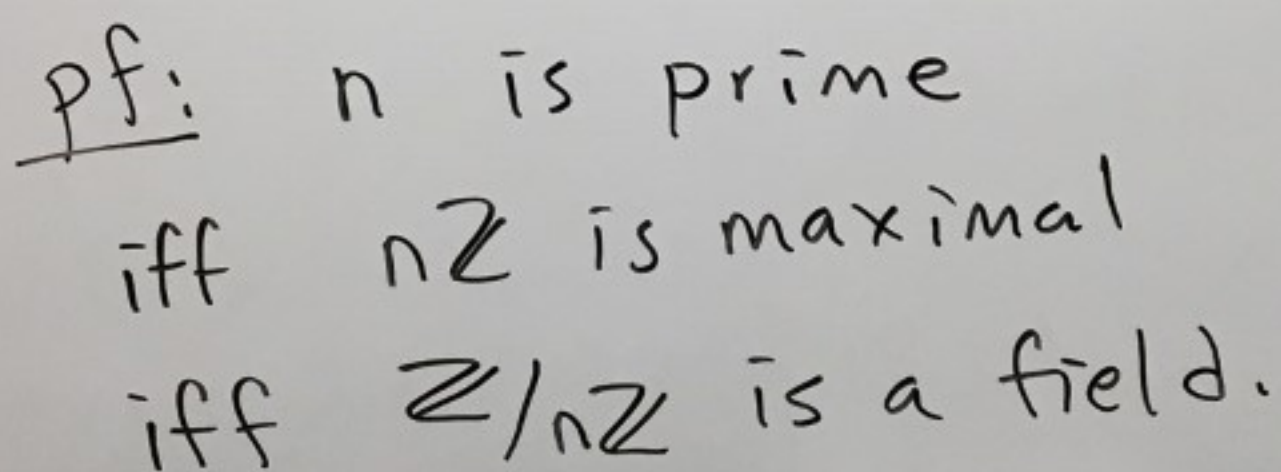 pf: n is prime
iff nℤ is maximal
iff ℤ/nℤ is a field.